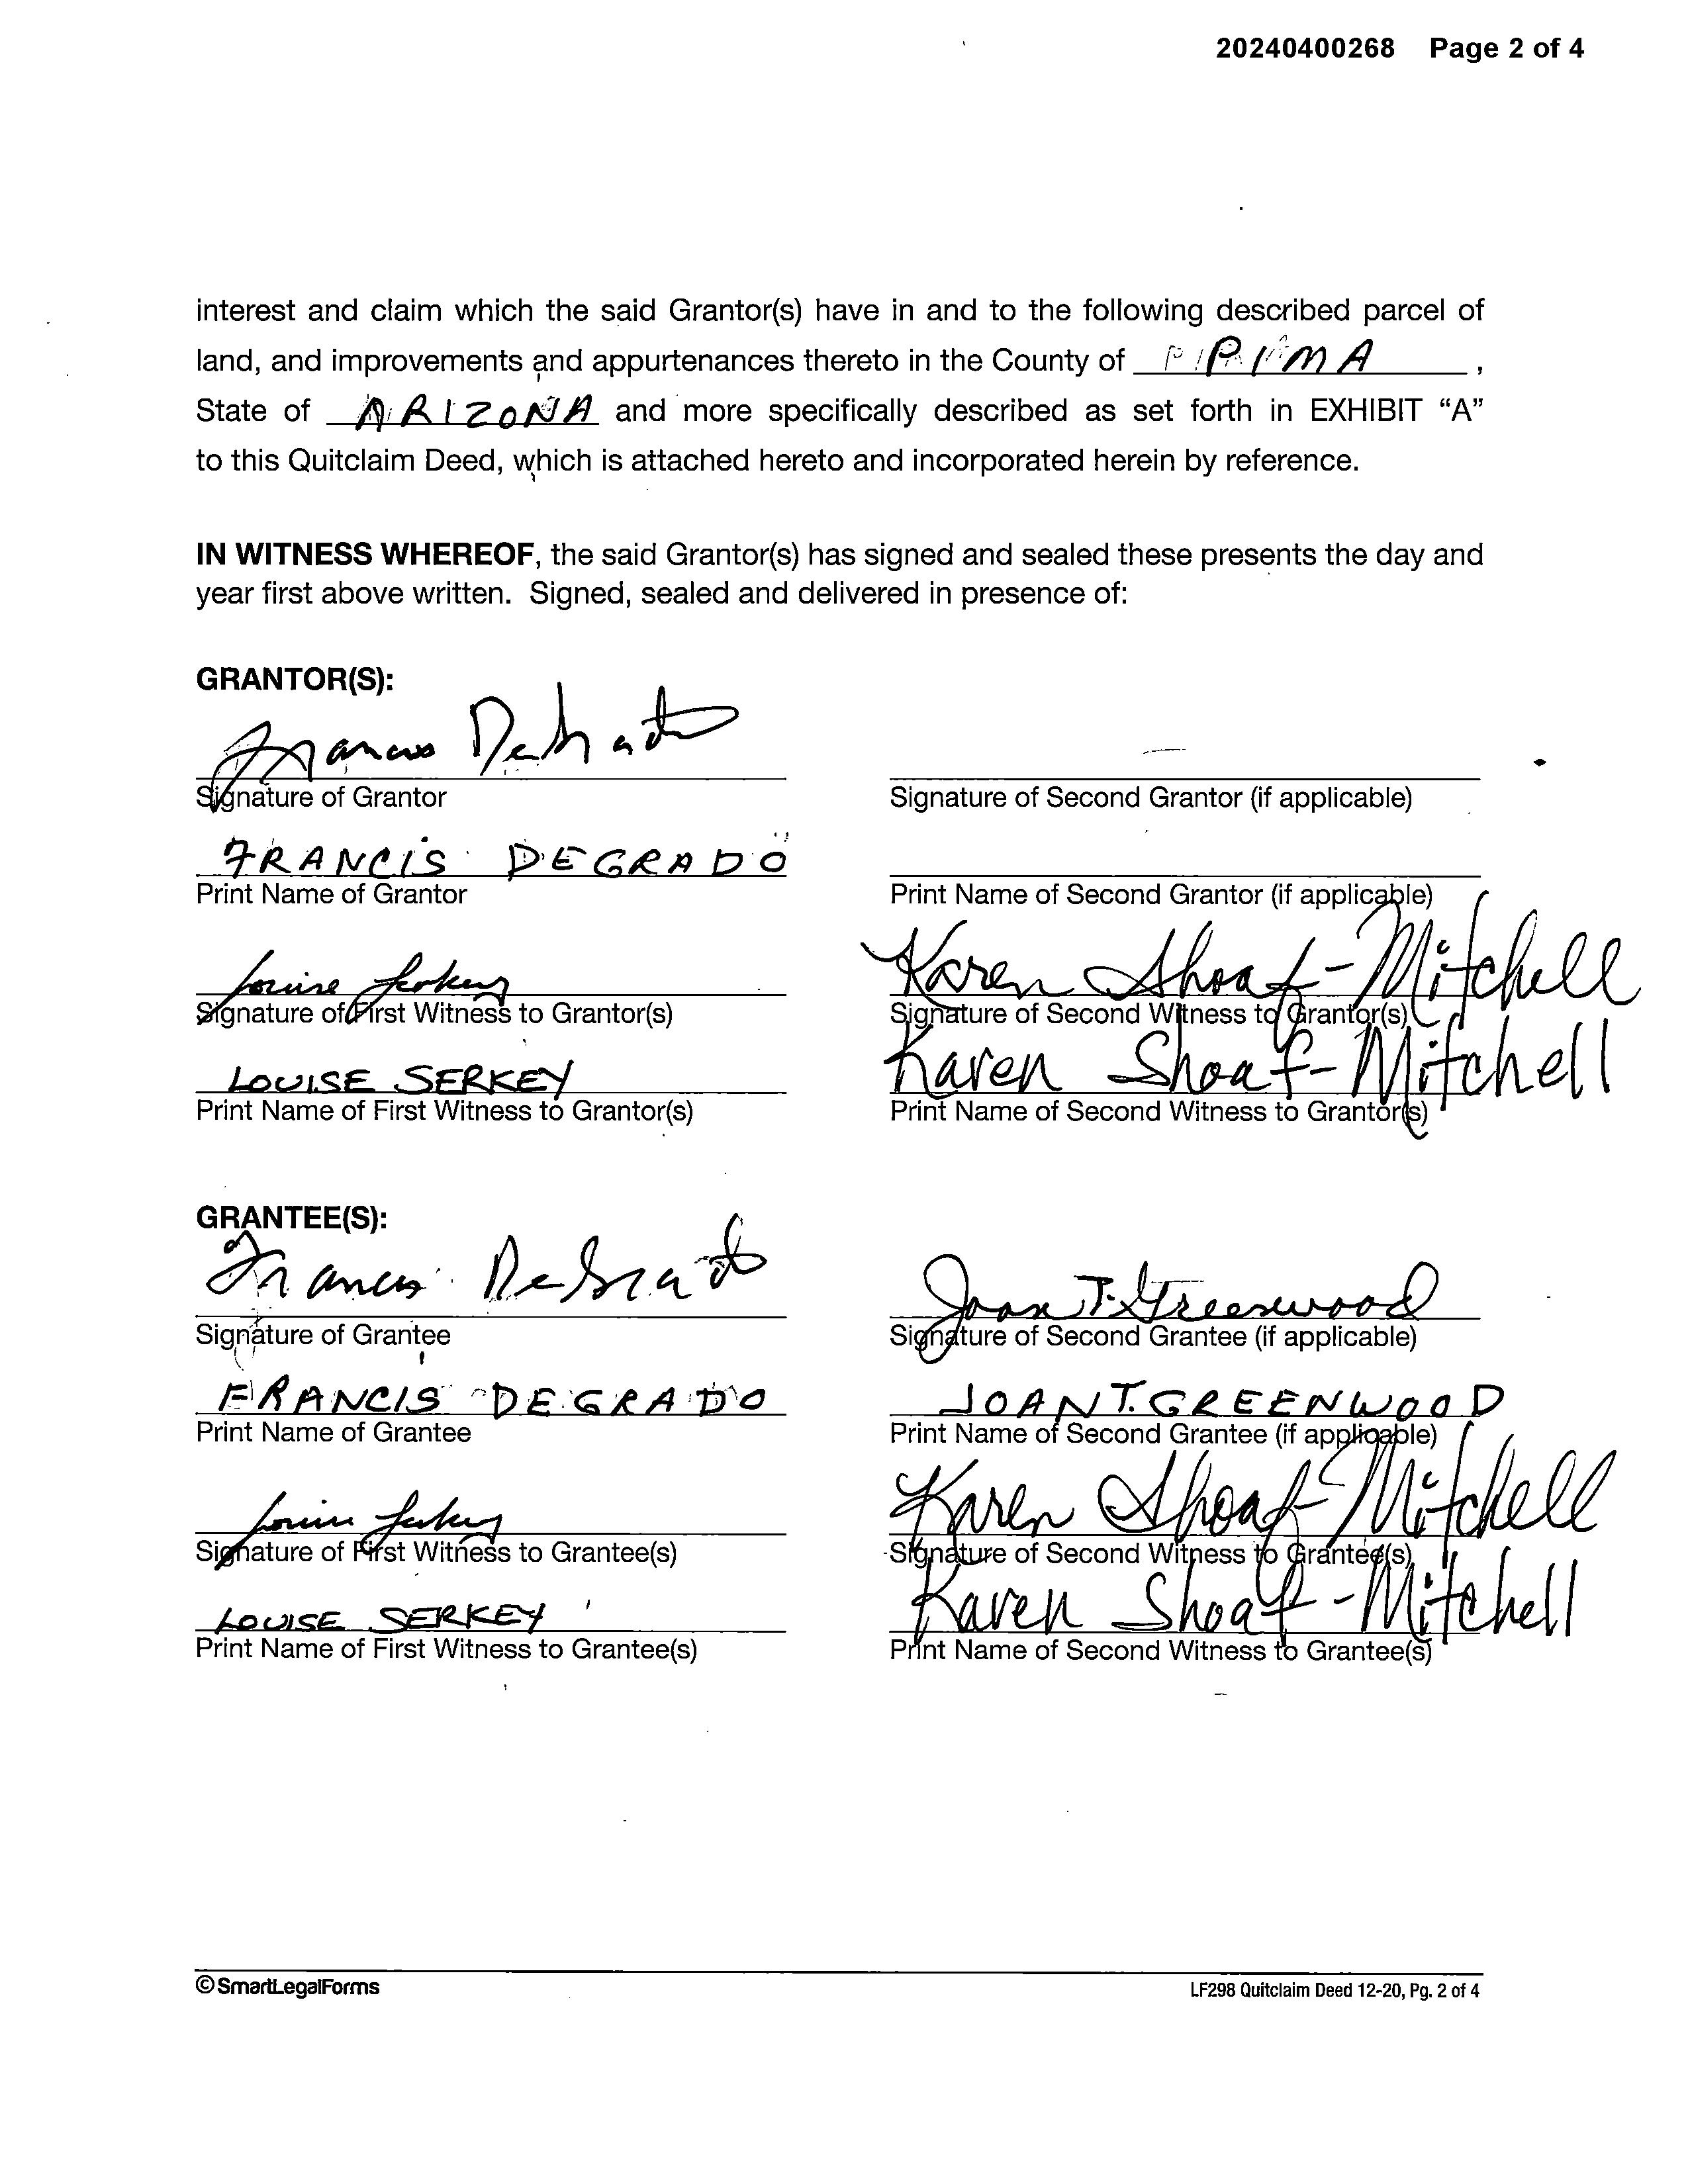 20240400268 Page 2 of 4
interest and claim which the said Grantor(s) have in and to the following described parcel of
land, and improvements and appurtenances thereto in the County of PIMA ,
State of ARIZONA and more specifically described as set forth in EXHIBIT “A”
to this Quitclaim Deed, which is attached hereto and incorporated herein by reference.
IN WITNESS WHEREOF, the said Grantor(s) has signed and sealed these presents the day and
year first above written. Signed, sealed and delivered in presence of:
GRANTOR(S):
Francis DeGrado
Signature of Grantor Signature of Second Grantor (if applicable)
FRANCIS DEGRADO
Print Name of Grantor Print Name of Second Grantor (if applicable)
Louise Serkey Karen Shoaf-Mitchell
Signature of First Witness to Grantor(s) Signature of Second Witness to Grantor(s)
LOUISE SERKEY Karen Shoaf-Mitchell
Print Name of First Witness to Grantor(s) Print Name of Second Witness to Grantor(s)
GRANTEE(S):
Francis DeGrado Joan T. Greenwood
Signature of Grantee Signature of Second Grantee (if applicable)
FRANCIS DEGRADO JOAN T. GREENWOOD
Print Name of Grantee Print Name of Second Grantee (if applicable)
Louise Serkey Karen Shoaf-Mitchell
Signature of First Witness to Grantee(s) Signature of Second Witness to Grantee(s)
LOUISE SERKEY Karen Shoaf-Mitchell
Print Name of First Witness to Grantee(s) Print Name of Second Witness to Grantee(s)
©SmartLegalForms LF298 Quitclaim Deed 12-20, Pg. 2 of 4